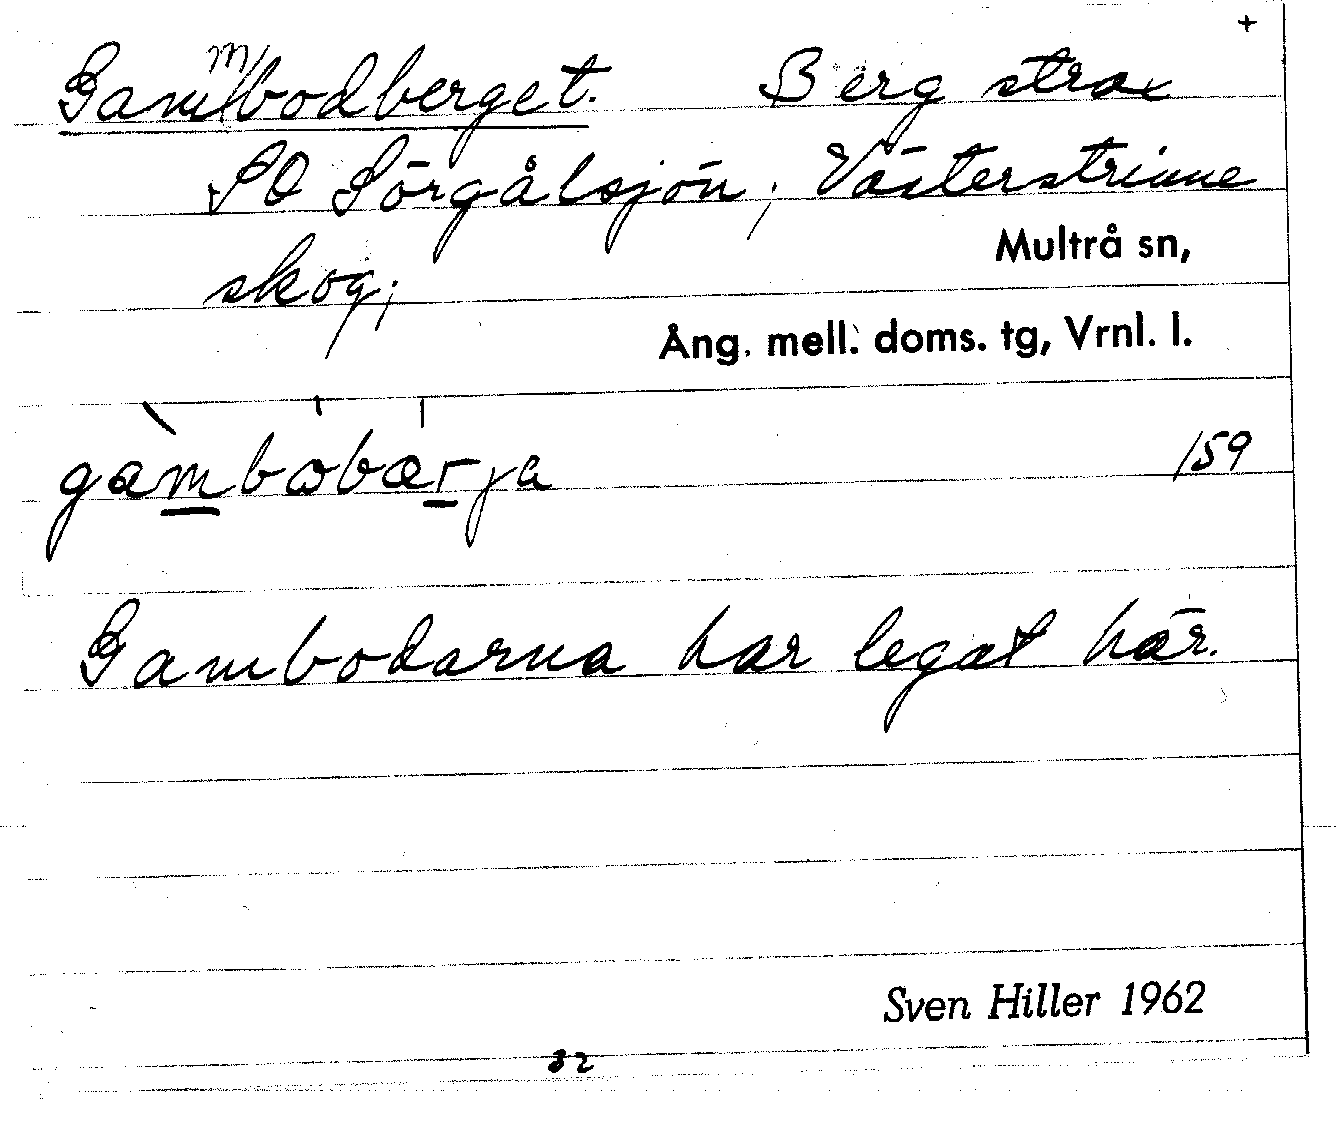 +
Gammbodberget. Berg strax
SO Sörgålsjön, Västerstrinne
skog,
Multrå sn,
Ång. mell. doms. tg, Vrnl. l.
gàmbo̍bæ̍rja
159
Gambodarna har legat här.
Sven Hiller 1962
82